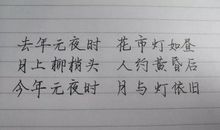 去年元夜时 花市灯如昼
月上柳梢头 人约黄昏后
今年元夜时 月与灯依旧